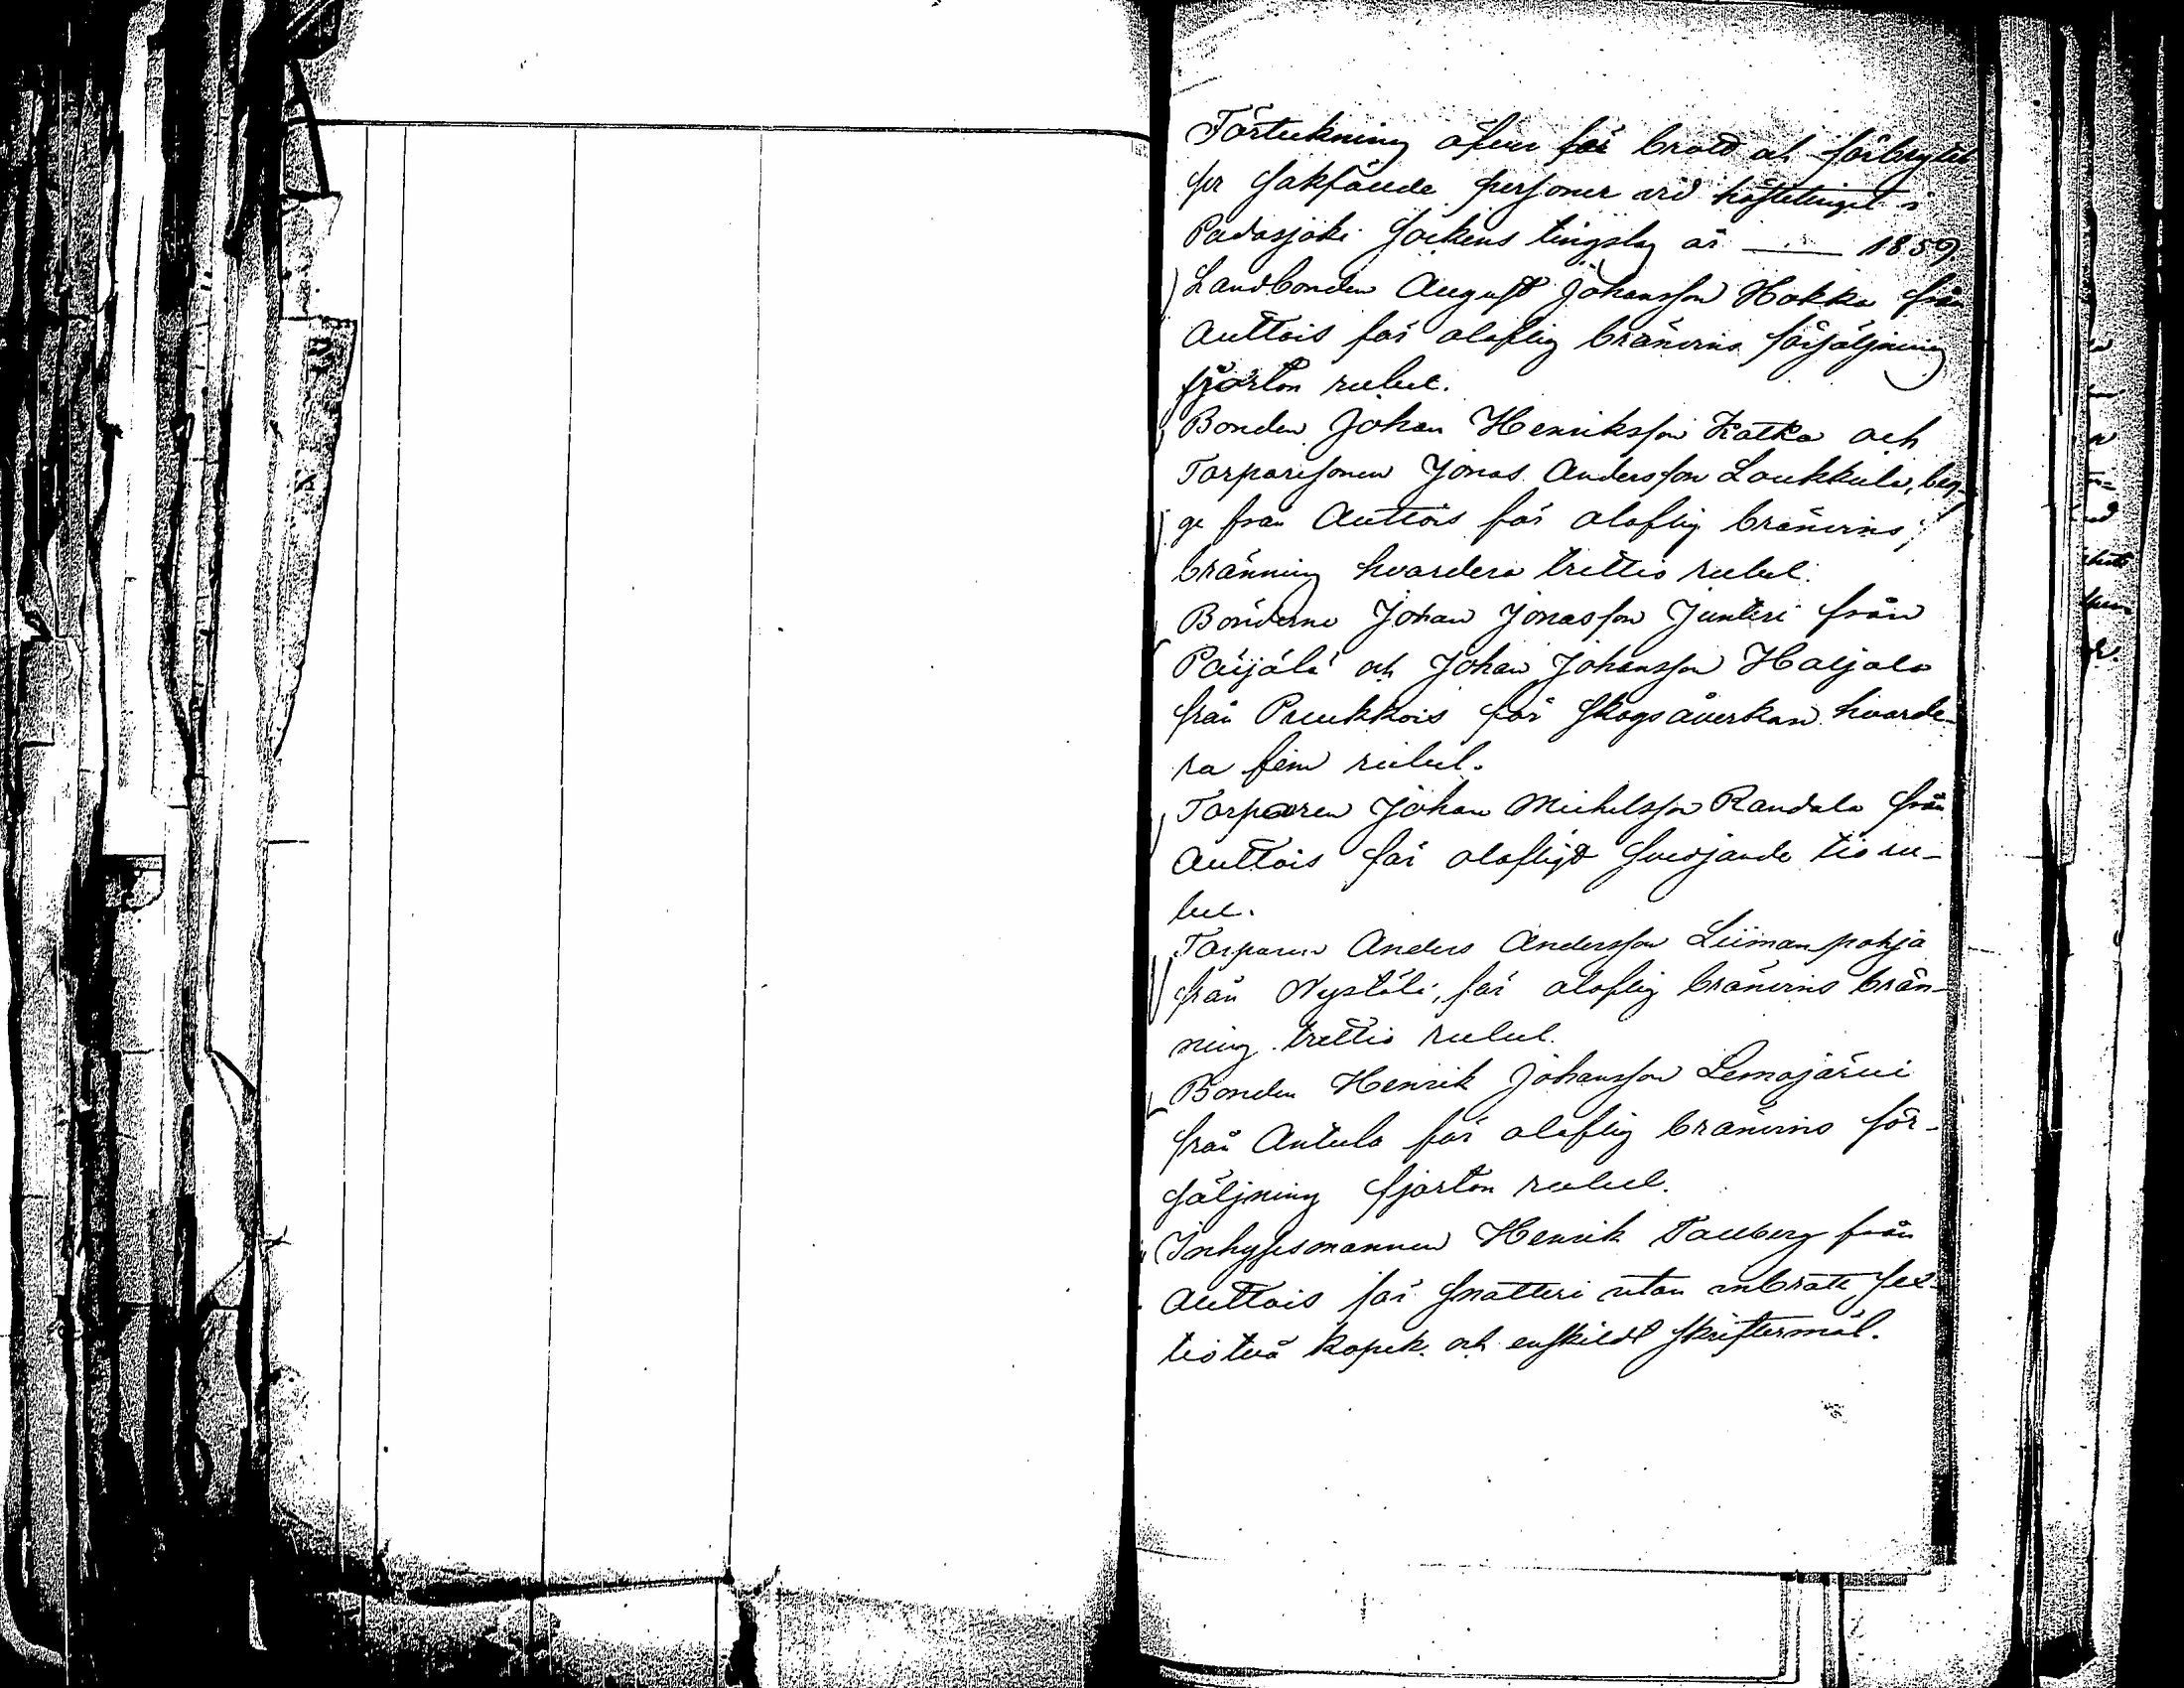 Förteckning öfver för brott och förbrytel
ser sakfäude personer vid hösttetinget i
Padasjoki Sockens tingslag år — 1859
Landbonden August Johansson Hokka från
Auttois för olaflig bränvins försäljning
fjorton rubel.
Bonden Johan Henriksson Katka och
Torparesonen Jonas Andersson Loukkula, beg-
ge från Auttois för olaflig bränvins
bränning hvardera trettio rubel.
Bönderne Johan Jonasson Junteri från
Päijälä och Johan Johansson Haljala
från Pruukkois för skogsåverkan hvarde-
ra fem rubel.
Torparen Johan Michelsson Randala från
Auttois för olafligt svedjande tio ru-
bel.
Torparen Anders Andersson Liimanpohja
från Nystölä, för olaflig bränvins brän-
ning trettio rubel.
Bonden Henrik Johansson Lemajärvi
från Antula för olaflig bränvins för-
säljning fjorton rubel.
Inhysesmannen Henrik Tauberg från
Auttois för snatteri utan inbrott sex-
tiotvå kopek. och enskildt skriftermål.